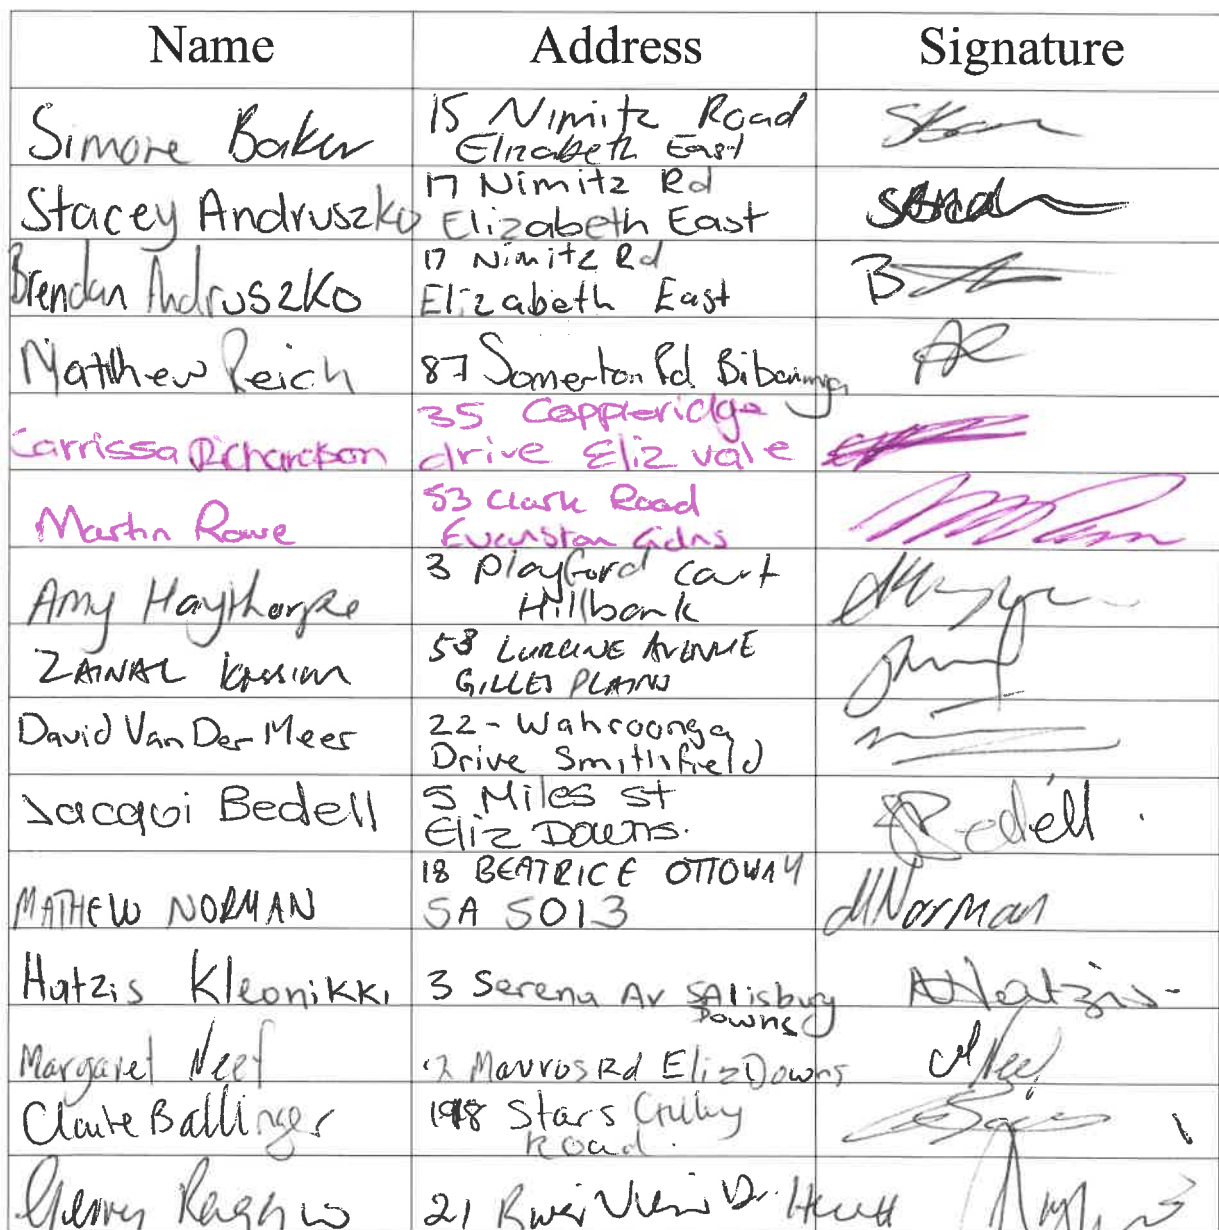 Name Address Signature
Simone Baker 15 Nimitz Road
Elizabeth East
Stacey Andruszko 17 Nimitz Rd
Elizabeth East
Brendan Andruszko 17 Nimitz Rd
Elizabeth East
Matthew Reich 87 Somerton Rd
Carrissa Richardson 35 Coppleridge
drive Eliz vale
Martin Rowe 53 Clark Road
Evanston Gdns
Amy Haythorpe 3 Playford Court
Hillbank
ZAINAL 58 AVENUE
GILLES PLAINS
David Van Der Meer 22 - Wahroonga
Drive Smithfield
Jacqui Bedell 5 Miles St
Eliz Downs.
JBedell
MATHEW NORMAN 18 BEATRICE OTTOWAY
SA 5013
MNorman
Hatzis Kleonikki 3 Serena Av SAlisbury
Downs
Margaret Neef Rd Eliz Downs
Claire Ballinger Stars
Road.
21 River View Dr.